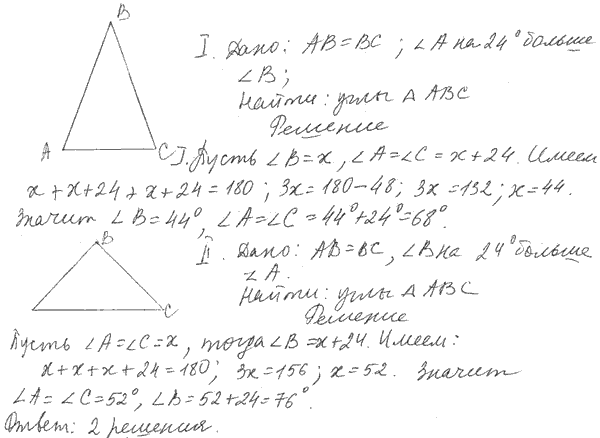 B
I. Дано: AB=BC; ∠A на 24° больше
∠B;
Найти: углы Δ ABC
Решение
A
C
I. Пусть ∠B=x, ∠A=∠C=x+24. Имеем
x+x+24+x+24=180; 3x=180-48; 3x=132; x=44.
Значит ∠B=44°, ∠A=∠C=44°+24°=68°.
B
II. Дано: AB=BC, ∠B на 24° больше
∠A.
Найти: углы Δ ABC
C
Решение
Пусть ∠A=∠C=x, тогда ∠B=x+24. Имеем:
x+x+x+24=180; 3x=156; x=52. Значит
∠A=∠C=52°, ∠B=52+24=76°.
Ответ: 2 решения.